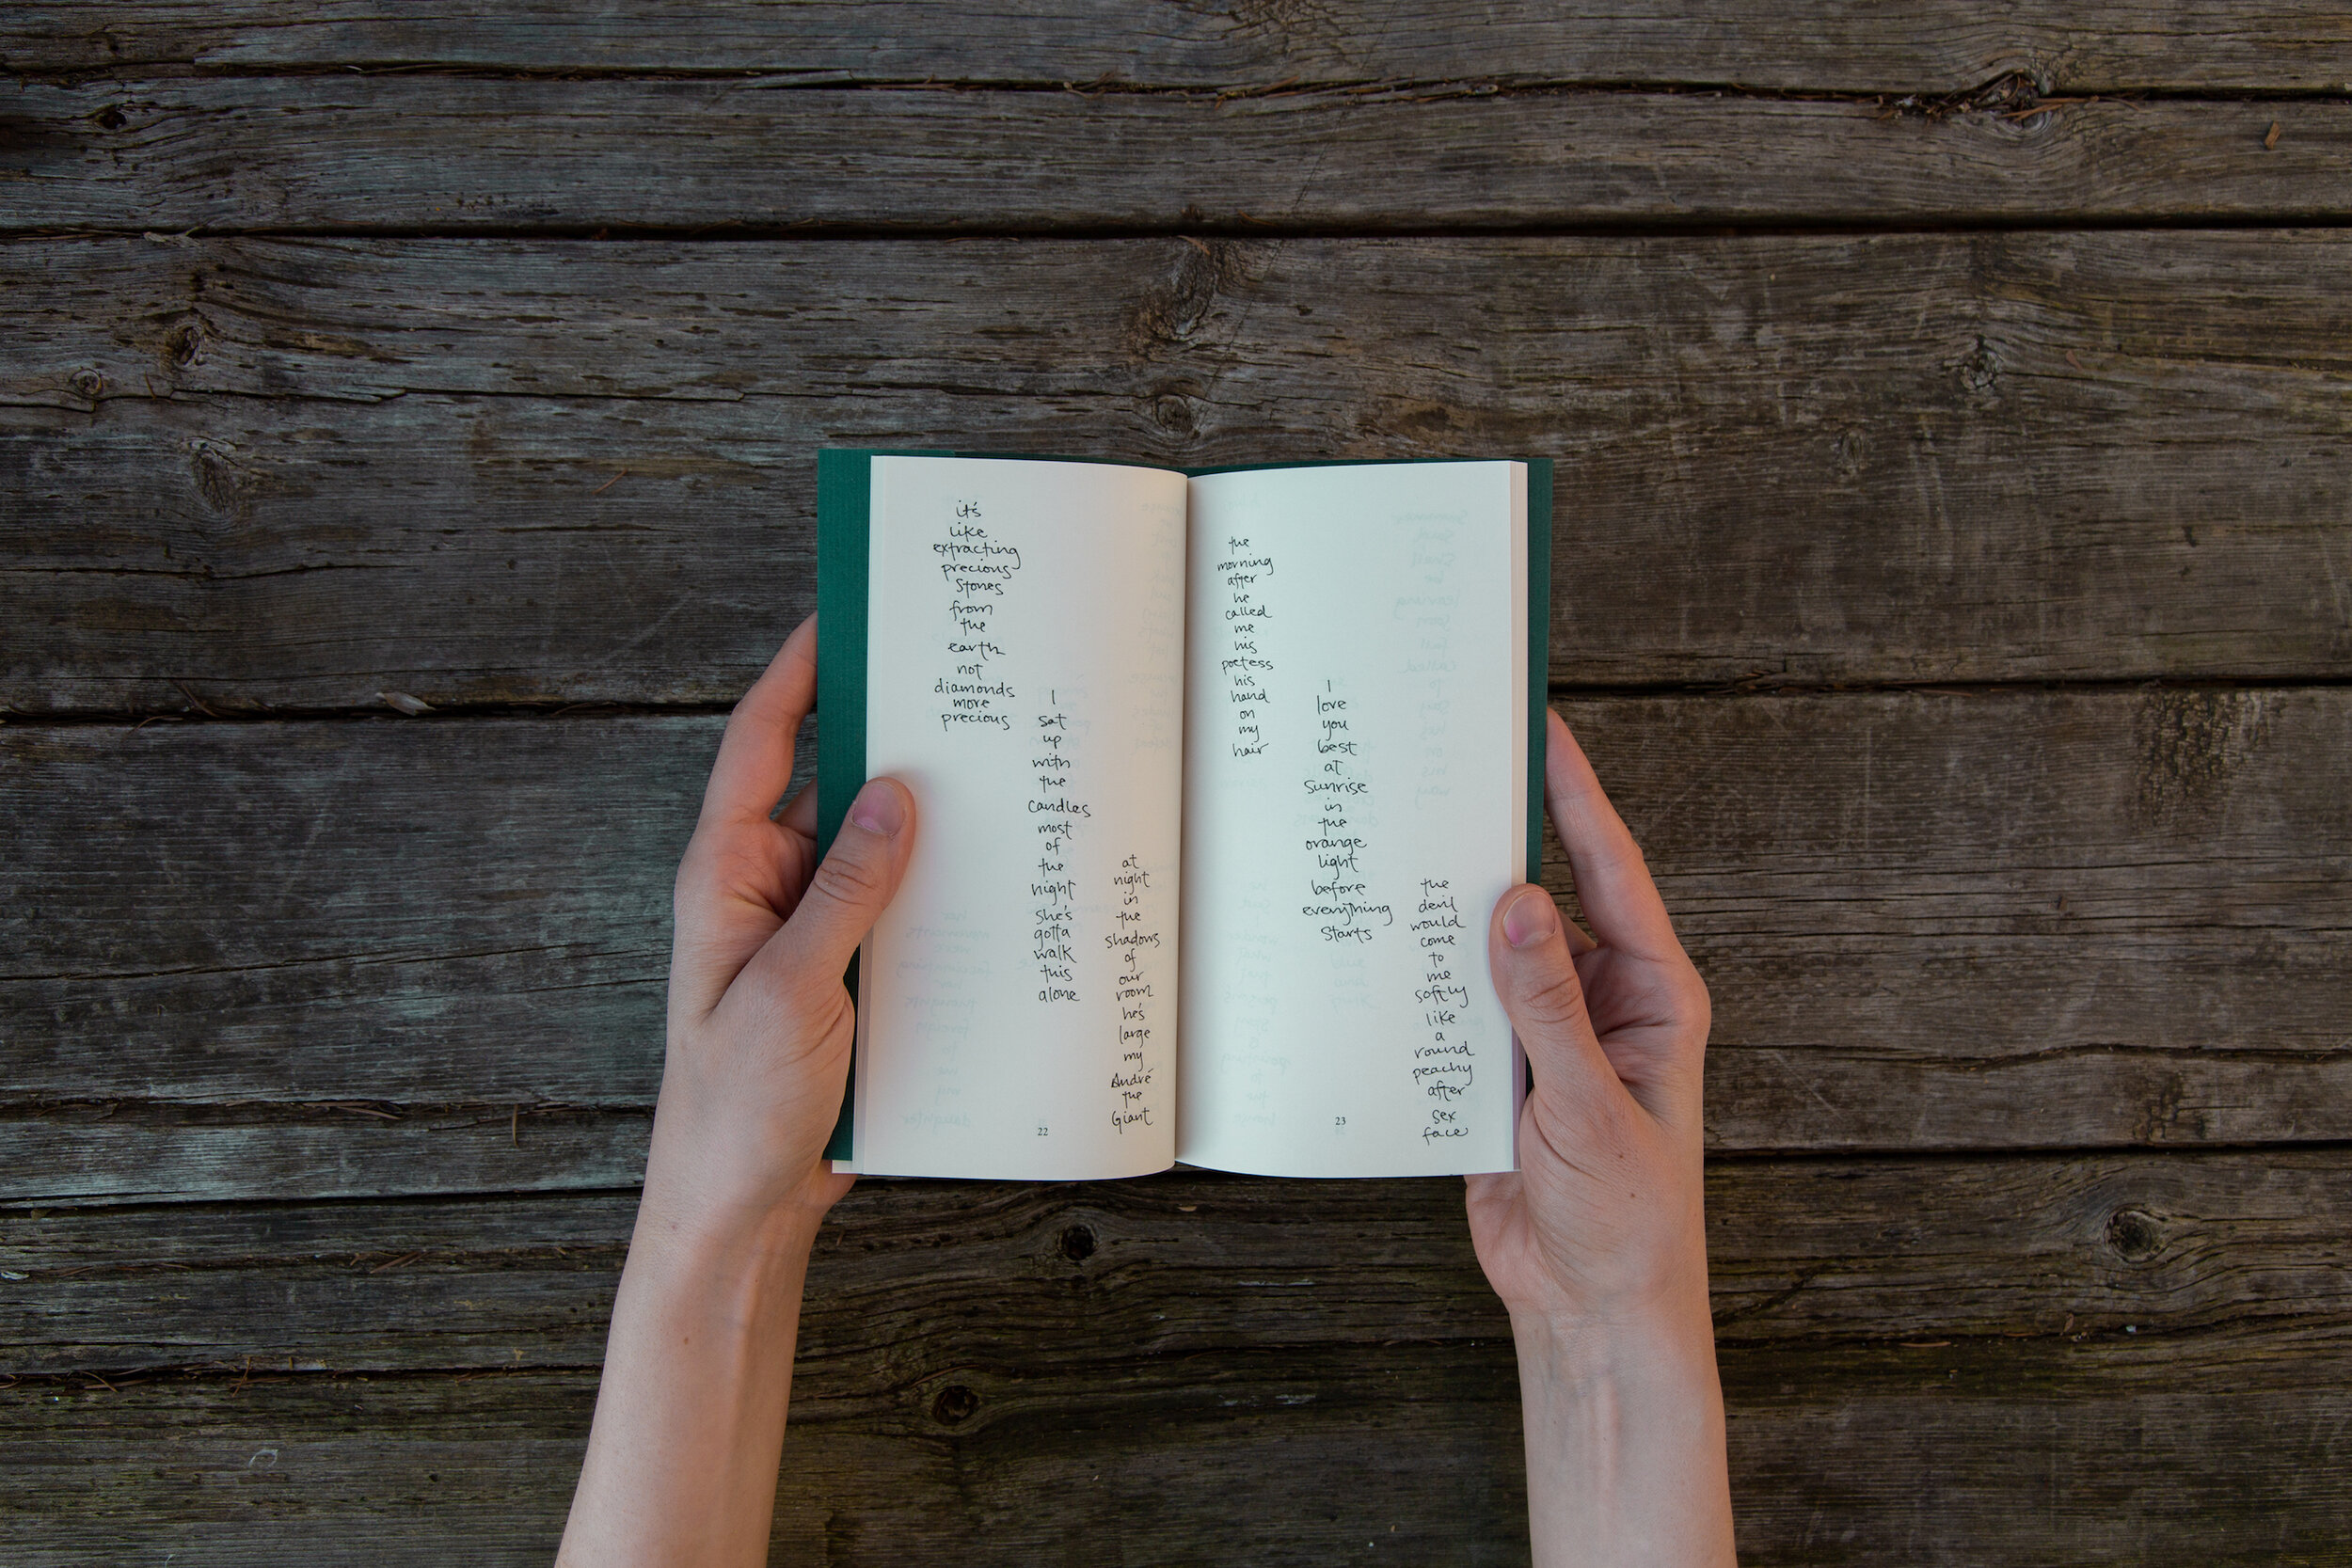 it's
like
extracting
precious
stones
from
the
earth
not
diamonds
more
precious
I
sat
up
with
the
candles
most
of
the
night
she's
gotta
walk
this
alone
at
night
in
the
shadows
of
our
room
he's
large
my
André
the
Giant
22
the
morning
after
he
called
me
his
poetess
his
hand
on
my
hair
I
love
you
best
at
sunrise
in
the
orange
light
before
everything
starts
the
devil
would
come
to
me
softly
like
a
round
peachy
after
sex
face
23